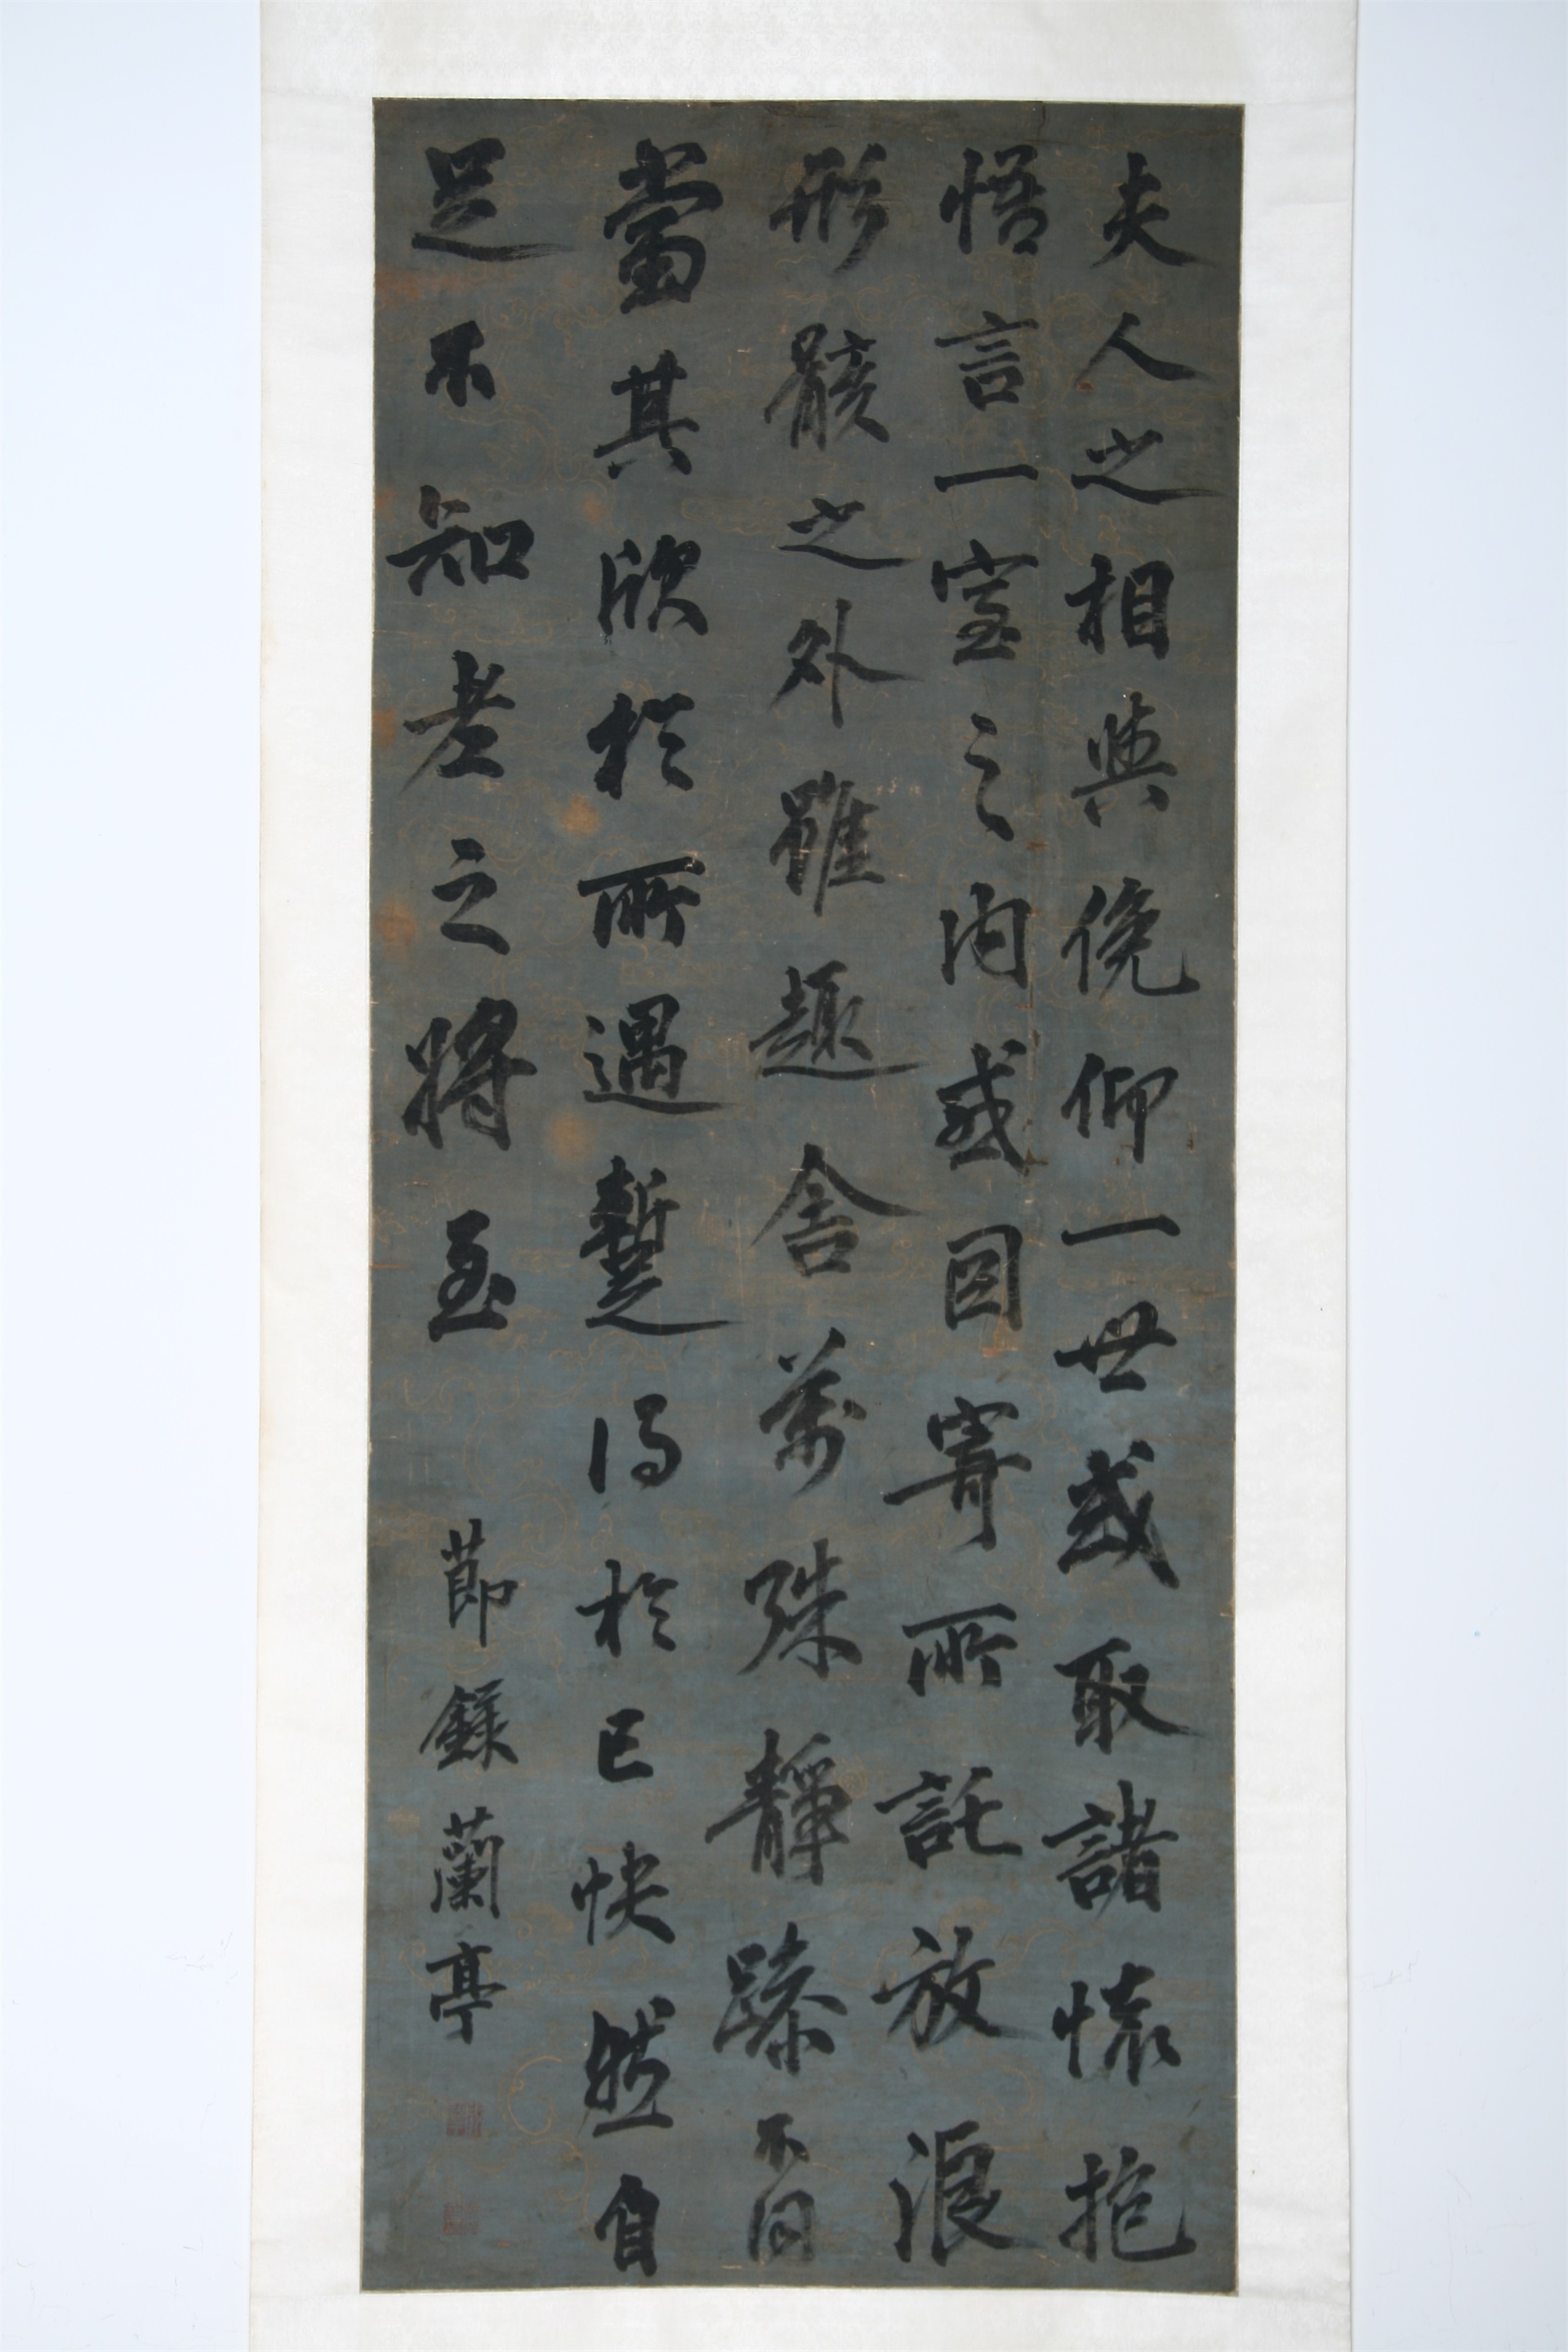 夫人之相與俛仰一世或取諸懷抱
悟言一室之內或因寄所託放浪
形骸之外雖趣舍萬殊靜躁不同
當其欣於所遇蹔得於己快然自
足不知老之將至 節錄蘭亭